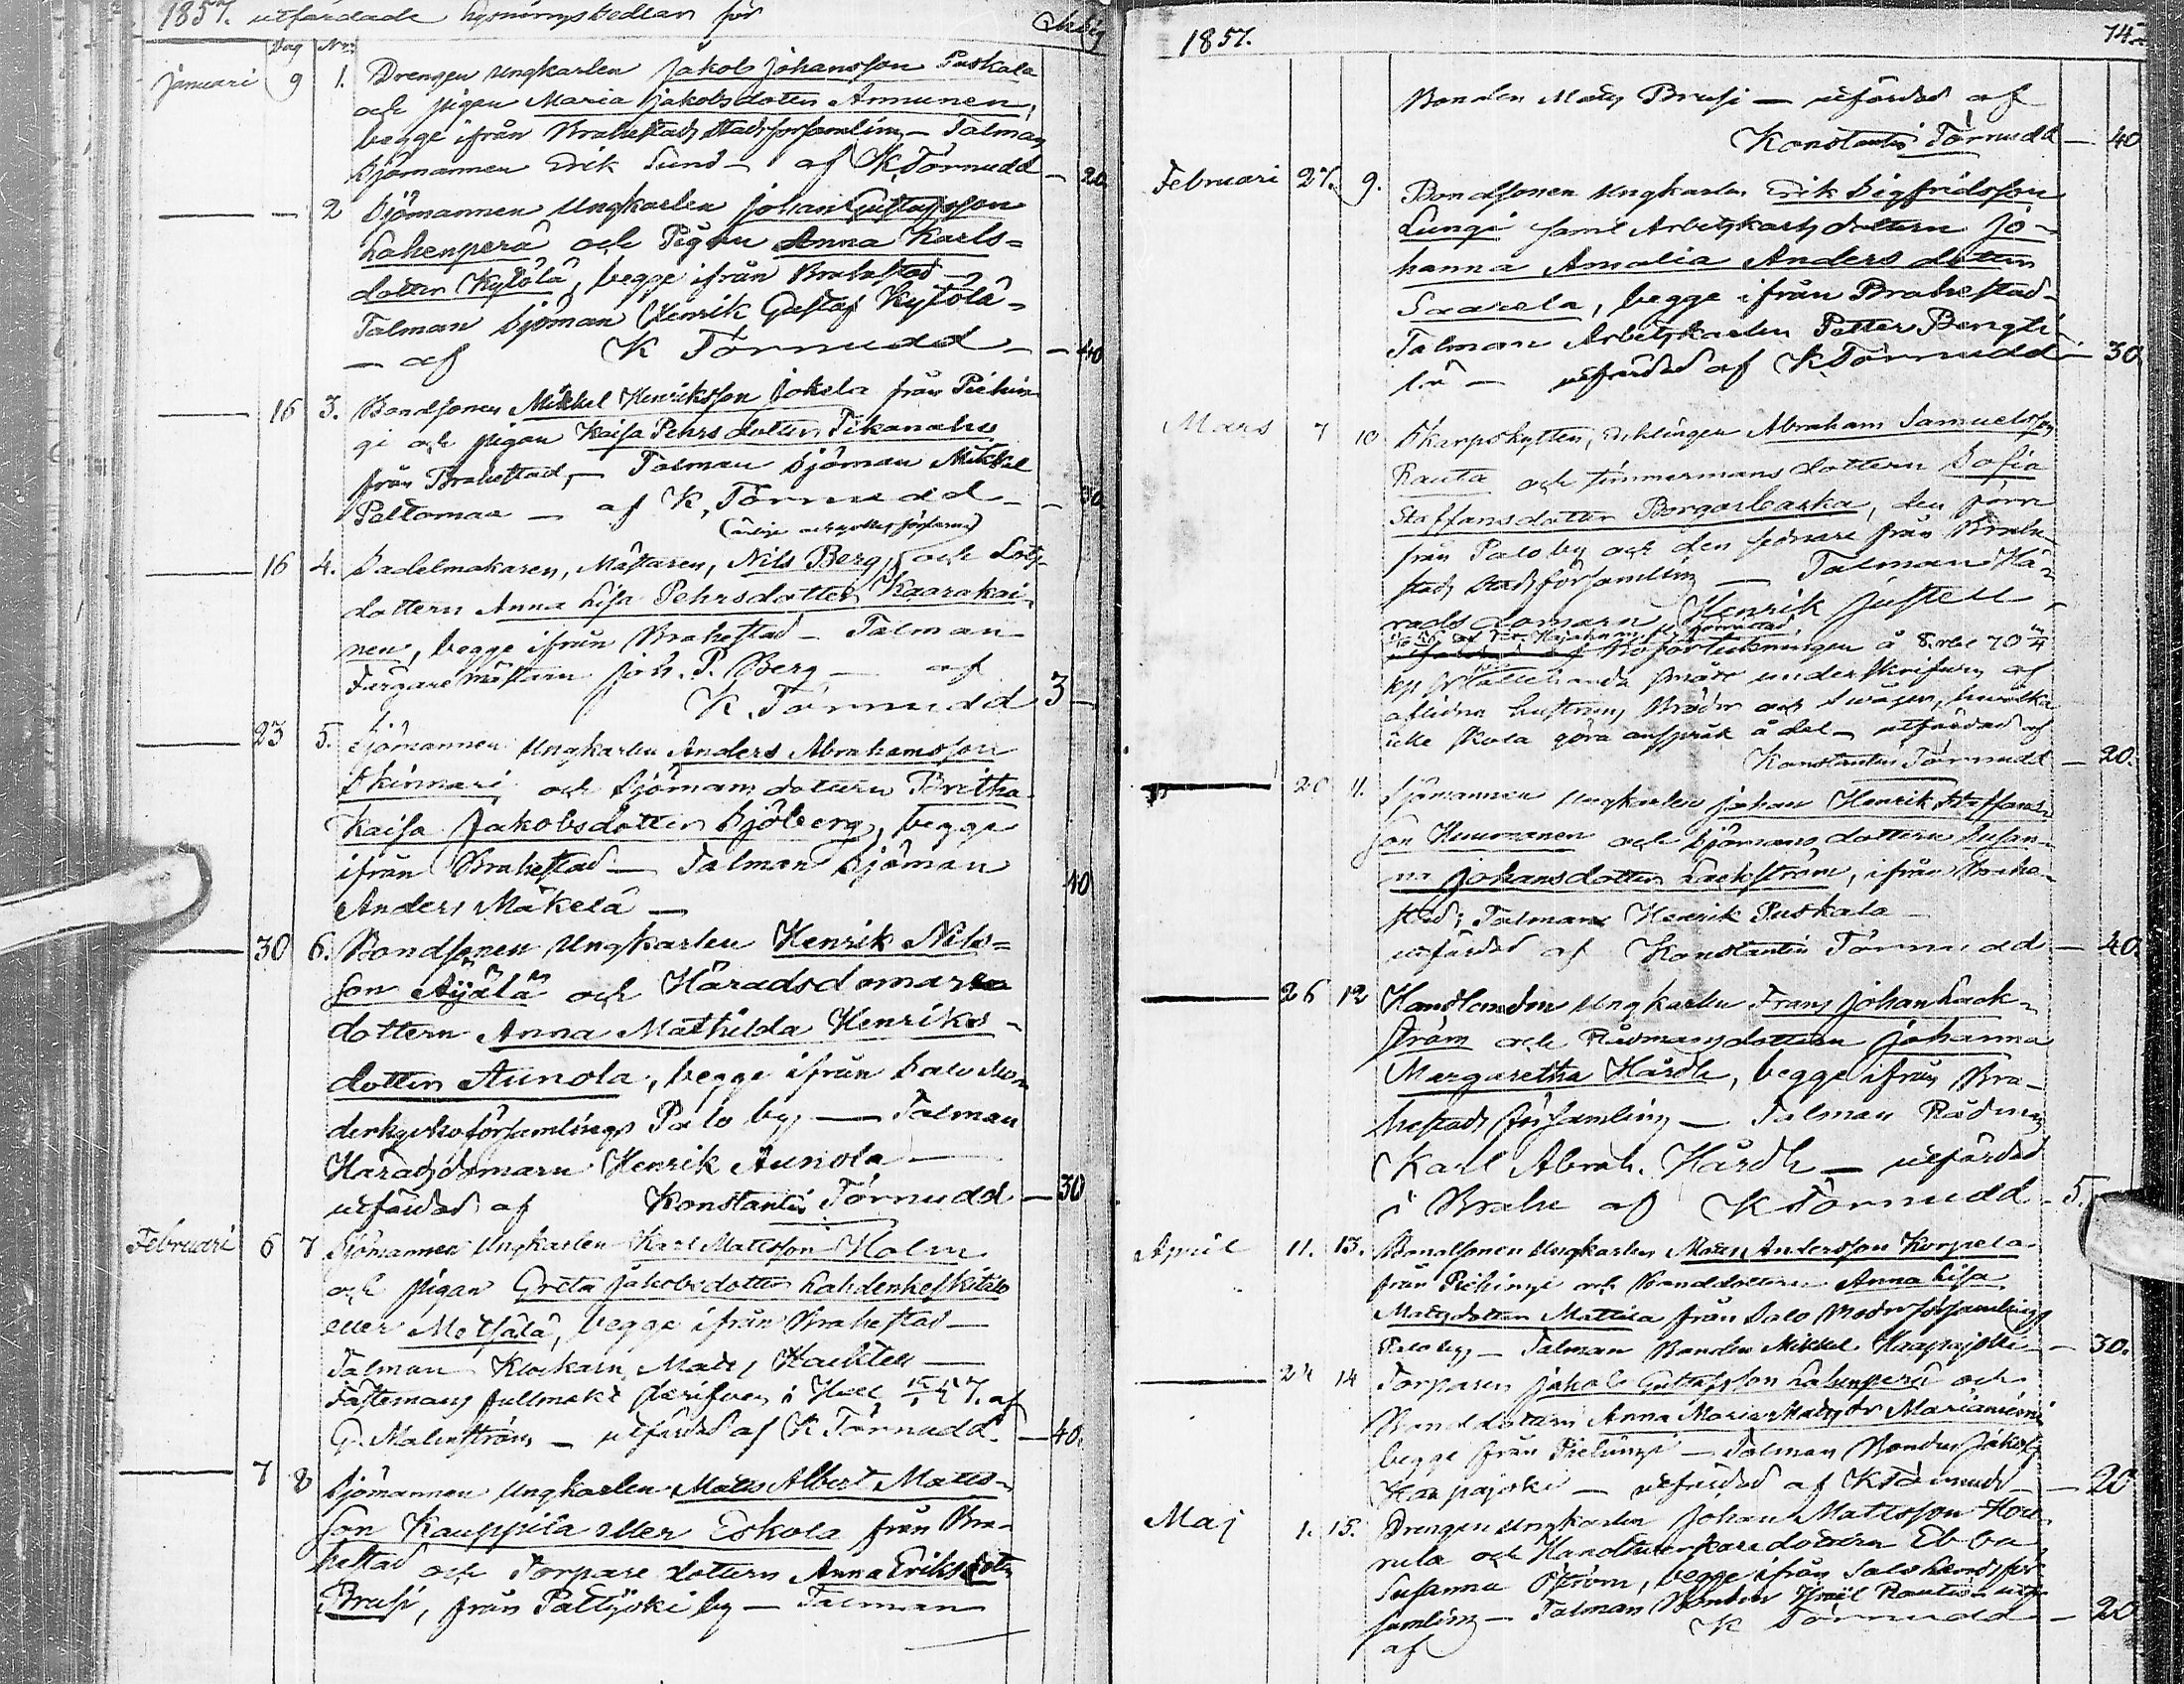 1857. utfärdade Lysningssedlar för
Dag Nr.
Januari 9 1. Drengen Ungkarlen Jakob Johansson Puskala
och pigan Maria Jakobsdotter Annunen,
begge ifrån Brahestads stadsförsamling – Talman
Sjömannen Erik Lund – af K Törnudd – 20
— — 2 Sjömannen Ungkarlen Johan Gustafsson
Lahenperä och Pigan Anna Karls=
dotter Kytölä, begge ifrån Brahestad –
Talman Sjöman Henrik Gustaf Kytölä –
– af K Törnudd – – 40
— 16 3. Bondsonen Mikkel Henriksson Jokela från Piehin
gi och pigan Kaisa Pehrsdotter Tikanaho
från Brahestad, – Talman Sjöman Mikkel
Peltomaa – af K. Törnudd – – 30
— 16 4. Sadelmakaren, Mästaren, Nils Berg, och Lots-
dottern Anna Lisa Pehrsdotter Kaarakai-
nen, begge ifrån Brahestad – Talman
Färgaremästarn Joh. P. Berg – af
K. Törnudd 3 –
— 23 5. Sjömannen Ungkarlen Anders Abrahamsson
Skinnari och Sjömans dottern Britha
Kaisa Jakobsdotter Sjöberg, begge
ifrån Brahestad – Talman Sjöman
Anders Mäkelä – 40
— 30 6. Bondsonen Ungkarlen Henrik Nils=
son Äijälä och Häradsdomare
dottern Anna Mathilda Henriks-
dotter Aunola, begge ifrån Salo Mo-
derkyrkoförsamlings Palo by, — Talman
Häradsdomarn Henrik Aunola –
utfärdad af Konstantin Törnudd – 30
Februari 6 7 Sjömannen Ungkarlen Karl Matsson Holm
och pigan Greta Jakobsdotter Lahdenkeskitalo
eller Metsälä, begge ifrån Brahestad –
Talman Klockarn Mats
Fästemans fullmakt skrifven i 57. af
G. Malmström – utfärdad af K Törnudd. – 40.
— 7 8 Sjömannen Ungkarlen Mats Albert Mats-
son Kauppila eller Eskola från Bra-
hestad och Torpare dottern Anna Eriksdoter
Brusi, från Pattijoki by – Talman
1857. 74
Bonden Mats Brusi – utfärdad af
Konstantin Törnudd – 40
Februari 27. 9. Bondsonen Ungkarlen Erik Sigfridsson
Lungi samt Arbetskarls dottern Jo-
hanna Amalia Anders dotter
Saarela, begge ifrån Brahestad –
Talman Arbetskarlen Petter Bengti-
lä – utfärdad af K Törnudd – 30
Mars 7 10 Skarpskytten, Enklingen Abraham Samuelsson
Rauta och timmermans dottern Sofia
Staffansdotter Borgarbacka, den förre
från Palo by och den sednare från Brahe-
stads stadsförsamling – Talman Hä-
radsdomarn Henrik Justell,
underskrifven af
aflidna hustruns Bröder och Svåger, hvilka
icke skola göra anspråk å del – utfärdad af
Konstantin Törnudd – 20.
— 20 11. Sjömannen Ungkarlen Johan Henrik Staffans-
son Huumanen och Sjömans dottern Susan-
na Johansdotter Lackström, ifrån Brahe-
stad; Talman Henrik Puskala –
utfärdad af Konstantin Törnudd – 40.
— 26 12 Handlanden Ungkarlen Frans Johan Lack-
ström och Rådmans dottern Johanna
Margaretha Hårdh, begge ifrån Bra-
hestads församling – Talman Rådman
Karl Abrah. Hårdh – utfärdad
i Brahe af K Törnudd – 5.
April 11. 13. Bondsonen Ungkarlen Mats Andersson Korpela
från Piehingi och Bonddottern Anna Lisa
Matsdotter Mattila från Salo Moderförsamlings
Palo by, – Talman Bonden Mikkel Haapajoki – – 30.
— 24 14 Torparen Jakob Gustafsson Lahenperä och
Bonddottern Anna Maria Matsdr Marianiemi
begge från Piehingi – Talman Bonden Jakob
Haapajoki – utfärdad af K Törnudd – – 20
Maj 1. 15. Drengen Ungkarlen Johan Matsson Hou-
rula och Handtverkaredottern Ebba
Susanna Öström, begge ifrån Salo landsför-
samling – Talman Bonden Israel Rautio utf.
af K Törnudd – 20